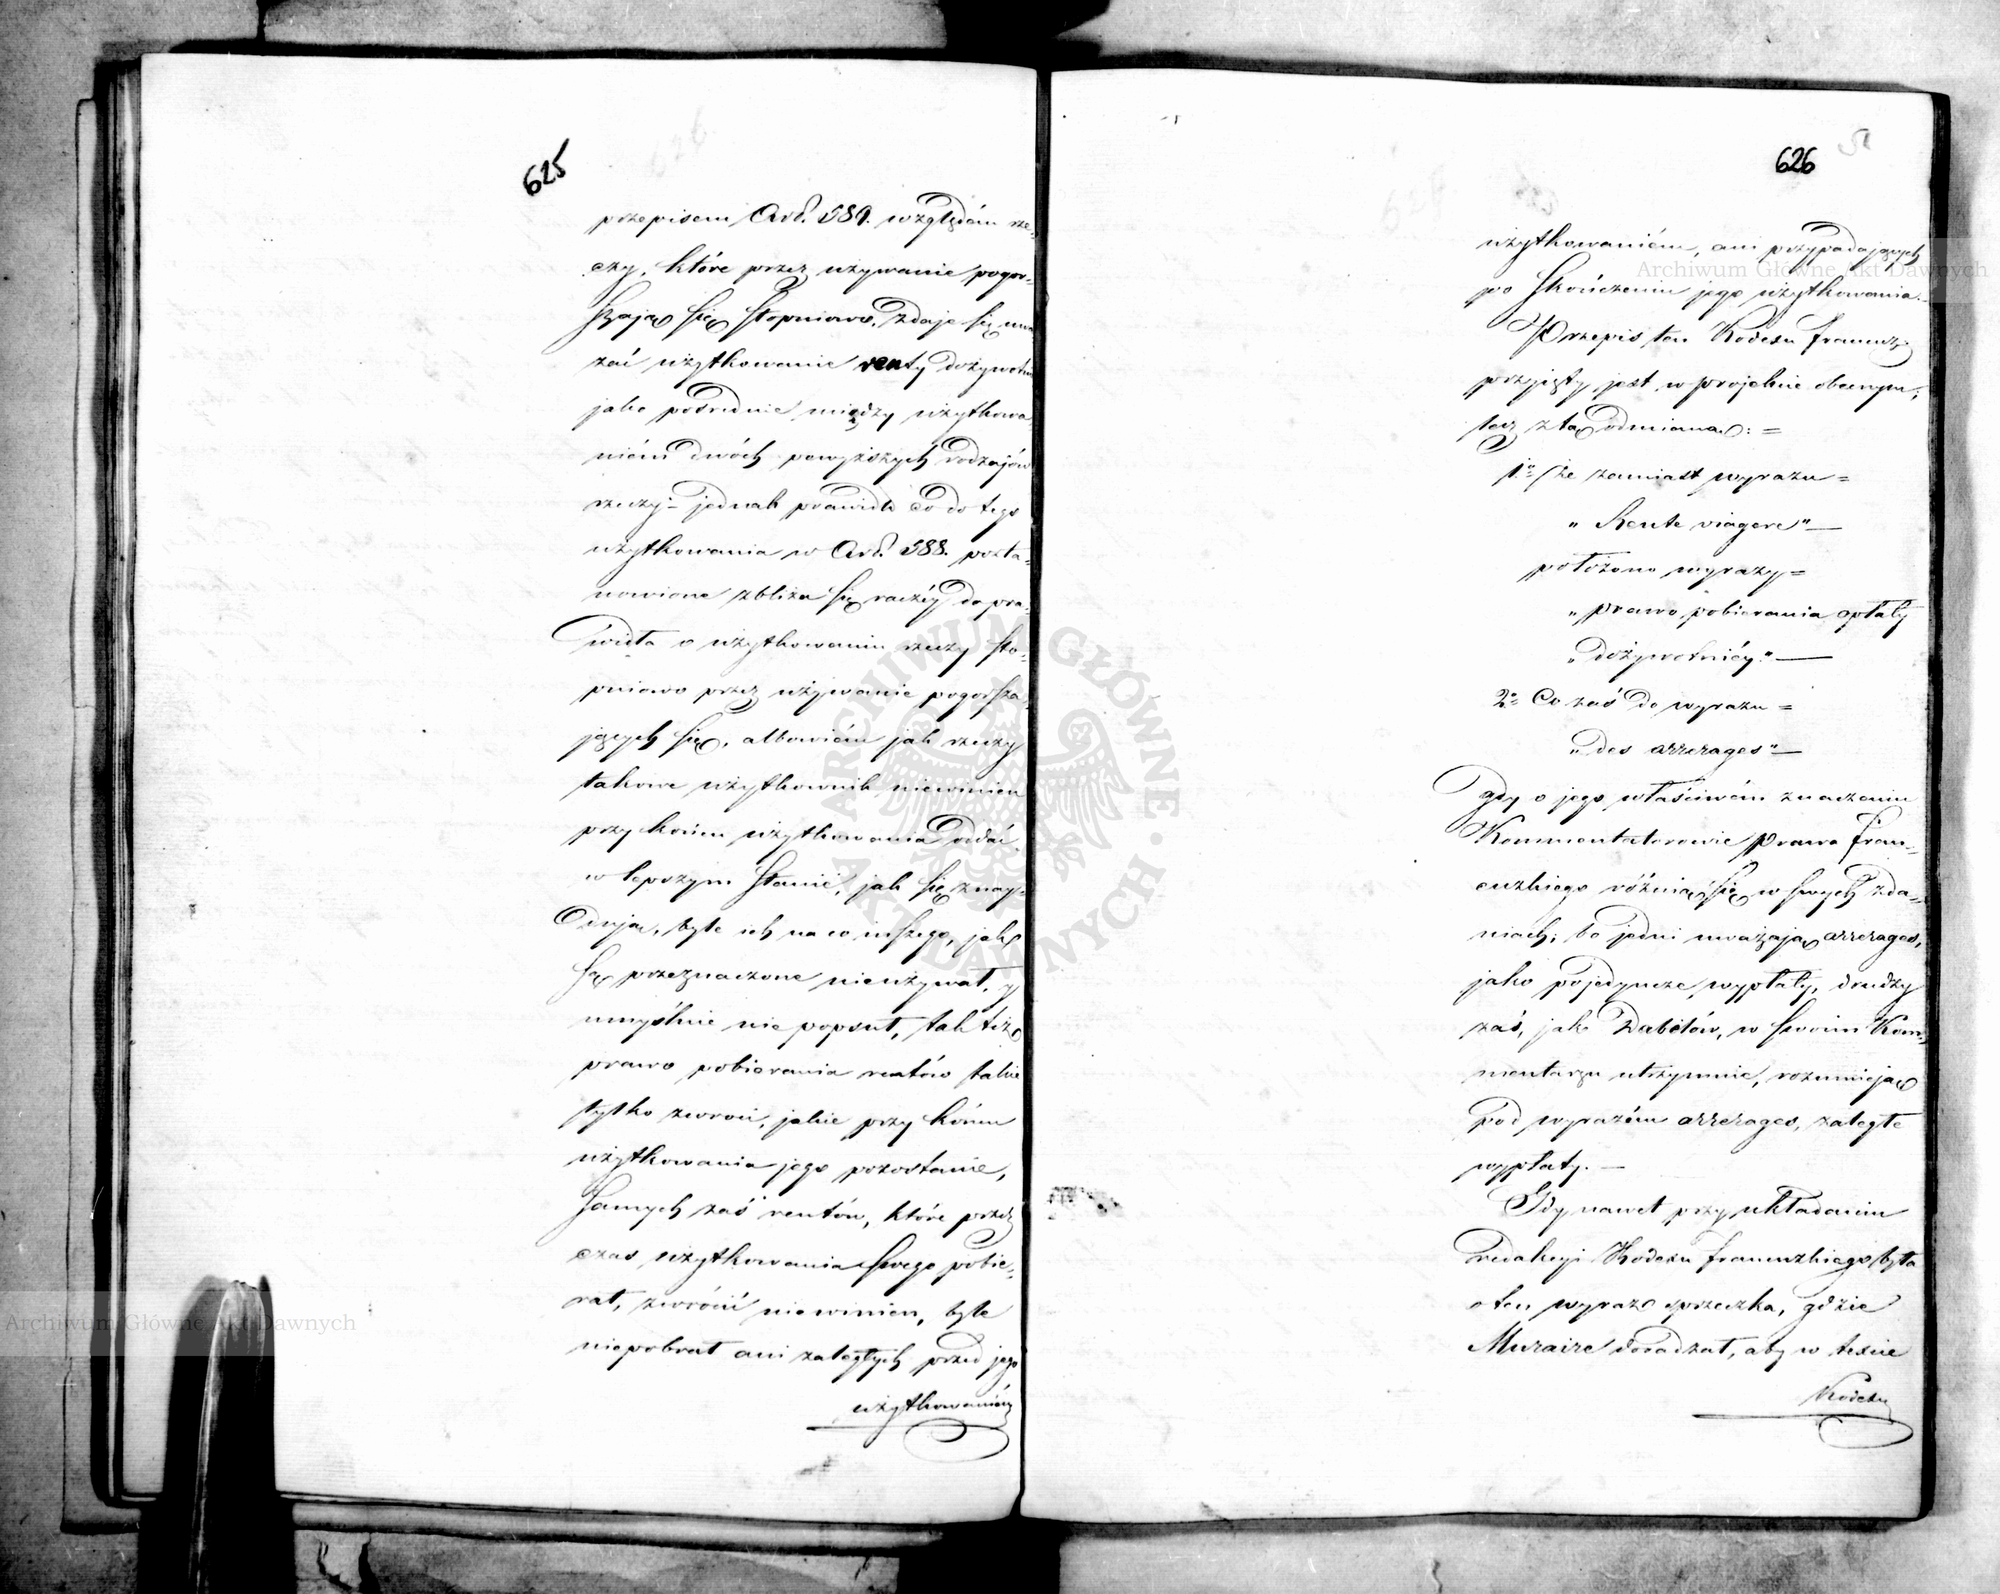 625
przepisem Art. 589. względém rze-
czy, które przez używanie pogor-
szają się stopniowo, zdaje się uwa
żać użytkowanie renty dożywotn
jako pośrednie między użytkowa
niém dwóch powyższych rodzajów
rzeczy jednak prawidło co do tego
użytkowania w Art. 588. posta-
nowione zbliża się raczéy do pra-
widła o użytkowaniu rzeczy sto-
pniowo przez używanie pogorsza-
jących się, albowiém jak rzeczy
takowe użytkownik niewinien
przy końcu użytkowania oddać
w lepszym stanie, jak się znay-
dują, byle ich na co inszego, jak
są przeznaczone nieużywał, y
umyślnie nie popsuł, tak téż
prawo pobierania rentów takie
tylko zwróci, jakie przy końcu
użytkowania jego pozostanie,
samych zaś rentów, które przez
czas użytkowania swego pobie-
rał, zwrócić niewinien, byle
niepobrał ani zaległych przed jego
użytkowaniém
626
użytkowaniém, ani przypadających
po skończeniu jego użytkowania.
Przepis ten Kodexu francuz
przyjęty jest w projekcie obecnym,
lecz z tą odmianą: =
1o że zamiast wyrazu =
„ Rente viagere" —
położono wyrazy =
„ prawo pobierania opłaty
„ dożywotniéy." —
2o Co zaś do wyrazu =
„ des arrerages" —
gdy o jego właściwém znaczeniu
Kommentatorowie prawa fran-
cuzkiego różnią się w swych zda-
niach; bo jedni uważają arrerages,
jako pojedyncze wypłaty, drudzy
zaś, jak Zabelów, w swoim Kom-
mentarzu utrzymuie, rozumieją
pod wyrazém arrerages, zaległe
wypłaty. —
Gdy nawet przy układaniu
redakcyi Kodexu francuzkiego była
o ten wyraz sprzeczka, gdzie
Muraire doradzał, aby w texcie
Kodexu
Archiwum Główne Akt Dawnych
Archiwum Główne Akt Dawnych
ARCHIWUM GŁÓWNE AKT DAWNYCH